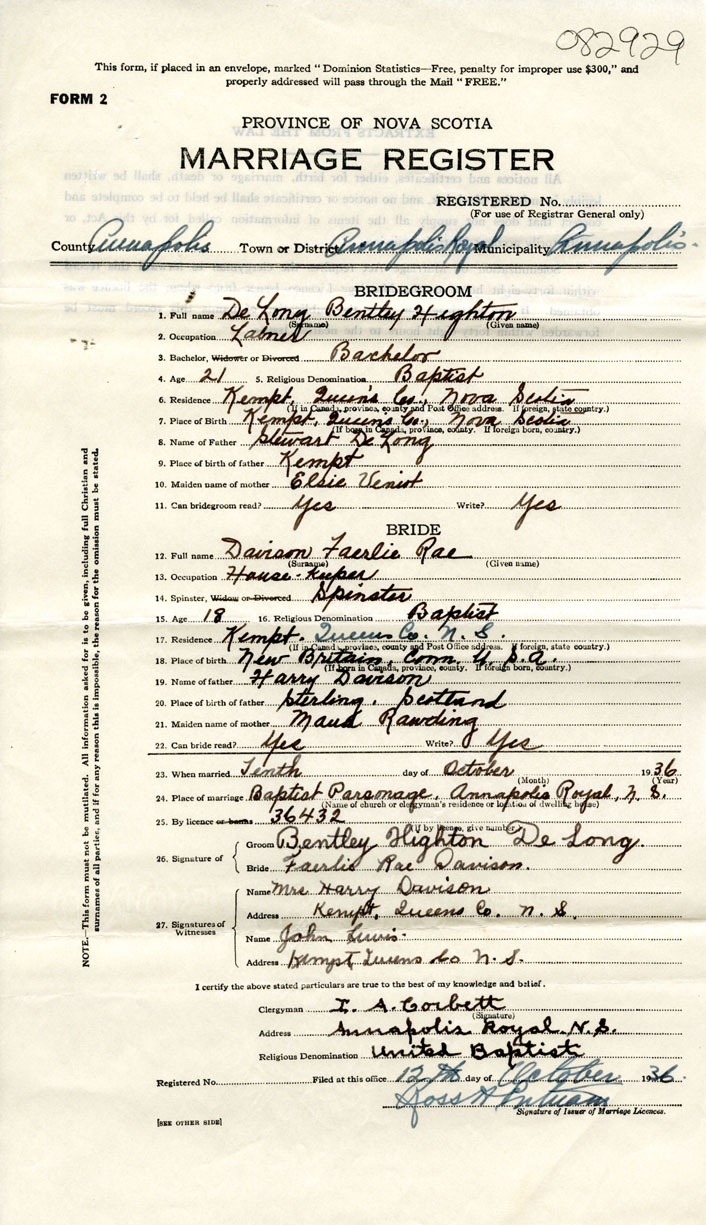 082929
This form, if placed in an envelope, marked "Dominion Statistics—Free, penalty for improper use $300," and
properly addressed will pass through the Mail "FREE."
FORM 2
PROVINCE OF NOVA SCOTIA
MARRIAGE REGISTER
REGISTERED No.
(For use of Registrar General only)
County Annapolis Town or District Annapolis Royal Municipality Annapolis
BRIDEGROOM
1. Full name De Long Bentley Highton
(Surname) (Given name)
2. Occupation Laborer
3. Bachelor, Widower or Divorced Bachelor
4. Age 21 5. Religious Denomination Baptist
6. Residence Kempt, Queens Co., Nova Scotia
(If in Canada, province, county and Post Office address. If foreign, state country.)
7. Place of Birth Kempt, Queens Co., Nova Scotia
(If born in Canada, province, county. If foreign born, country.)
8. Name of Father Stewart De Long
9. Place of birth of father Kempt
10. Maiden name of mother Elsie Veniot
11. Can bridegroom read? Yes Write? Yes
BRIDE
12. Full name Davison Faerlie Rae
(Surname) (Given name)
13. Occupation House-keeper
14. Spinster, Widow or Divorced Spinster
15. Age 18 16. Religious Denomination Baptist
17. Residence Kempt. Queens Co. N. S.
(If in Canada, province, county and Post Office address. If foreign, state country.)
18. Place of birth New Britain, Conn. U. S. A.
(If born in Canada, province, county. If foreign born, country.)
19. Name of father Harry Davison
20. Place of birth of father Sterling, Scotland
21. Maiden name of mother Maud Rawding
22. Can bride read? Yes Write? Yes
23. When married Tenth day of October 1936
(Month) (Year)
24. Place of marriage Baptist Parsonage, Annapolis Royal, N. S.
(Name of church or clergyman's residence or location of dwelling house)
25. By licence or banns 36432
(If by licence, give number)
26. Signature of
Groom Bentley Highton De Long.
Bride Faerlie Rae Davison.
27. Signatures of Witnesses
Name Mrs Harry Davison
Address Kempt, Queens Co. N. S.
Name John Lewis
Address Kempt Queens Co N. S.
I certify the above stated particulars are true to the best of my knowledge and belief.
Clergyman I. A. Corbett
(Signature)
Address Annapolis Royal, N.S.
Religious Denomination United Baptist
Registered No. Filed at this office 12th day of October 1936
Ross A Putnam
Signature of Issuer of Marriage Licences.
[SEE OTHER SIDE]
NOTE.—This form must not be mutilated. All information asked for is to be given, including full Christian and
surnames of all parties, and if for any reason this is impossible, the reason for the omission must be stated.